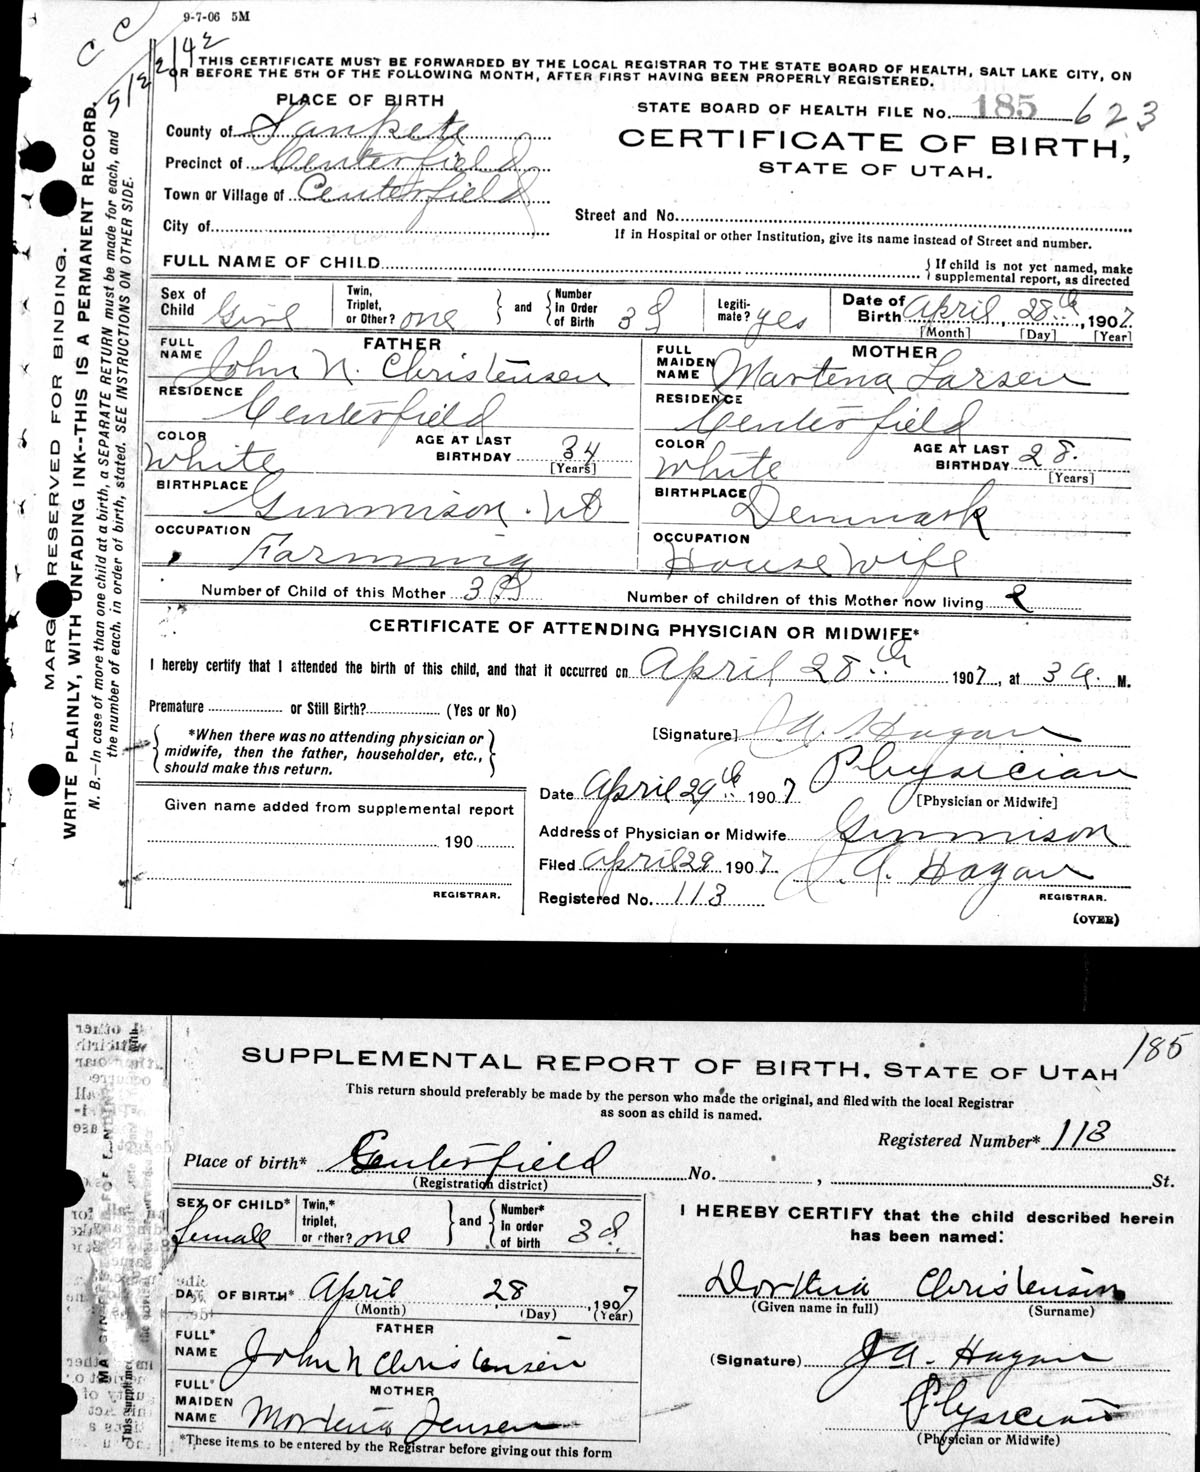 9-7-06 5M
C C
5/22/42
THIS CERTIFICATE MUST BE FORWARDED BY THE LOCAL REGISTRAR TO THE STATE BOARD OF HEALTH, SALT LAKE CITY, ON
OR BEFORE THE 5TH OF THE FOLLOWING MONTH, AFTER FIRST HAVING BEEN PROPERLY REGISTERED.
MARG RESERVED FOR BINDING.
WRITE PLAINLY, WITH UNFADING INK--THIS IS A PERMANENT RECORD.
N. B.—In case of more than one child at a birth, a SEPARATE RETURN must be made for each, and
the number of each, in order of birth, stated. SEE INSTRUCTIONS ON OTHER SIDE.
PLACE OF BIRTH
County of Sanpete
Precinct of Centerfield
Town or Village of Centerfield
City of
STATE BOARD OF HEALTH FILE No. 185 623
CERTIFICATE OF BIRTH,
STATE OF UTAH.
Street and No.
If in Hospital or other Institution, give its name instead of Street and number.
FULL NAME OF CHILD
If child is not yet named, make
supplemental report, as directed
Sex of Child Girl Twin, Triplet, or Other? one and Number In Order of Birth 3d Legiti-mate? yes Date of Birth April 28th, 1907.
[Month] [Day] [Year]
FATHER
FULL NAME John N. Christensen
RESIDENCE Centerfield
COLOR White AGE AT LAST BIRTHDAY 34 [Years]
BIRTHPLACE Gunnison. Ut
OCCUPATION Farming
MOTHER
FULL MAIDEN NAME Martena Larsen
RESIDENCE Centerfield
COLOR White AGE AT LAST BIRTHDAY 28. [Years]
BIRTHPLACE Denmark
OCCUPATION House Wife
Number of Child of this Mother 3d Number of children of this Mother now living 2
CERTIFICATE OF ATTENDING PHYSICIAN OR MIDWIFE*
I hereby certify that I attended the birth of this child, and that it occurred on April 28th 1907, at 3 a. M.
Premature or Still Birth? (Yes or No)
*When there was no attending physician or
midwife, then the father, householder, etc.,
should make this return.
[Signature] J. A. Hagan
Physician
[Physician or Midwife]
Date April 29th 1907
Given name added from supplemental report
190
REGISTRAR.
Address of Physician or Midwife Gunnison
Filed April 29 1907. J. A. Hagan
Registered No. 113 REGISTRAR.
(OVER)
185
SUPPLEMENTAL REPORT OF BIRTH, STATE OF UTAH
This return should preferably be made by the person who made the original, and filed with the local Registrar
as soon as child is named.
Registered Number* 113
Place of birth* Centerfield No. , St.
(Registration district)
SEX OF CHILD* Female Twin,* triplet, or other? one and Number* In order of birth 3d.
DATE OF BIRTH* April 28, 1907
(Month) (Day) (Year)
FATHER
FULL* NAME John N Christensen
MOTHER
FULL* MAIDEN NAME Mortena Jensen
*These items to be entered by the Registrar before giving out this form
I HEREBY CERTIFY that the child described herein
has been named:
Dorthea Christensen
(Given name in full) (Surname)
(Signature) J A. Hagan
Physician
(Physician or Midwife)